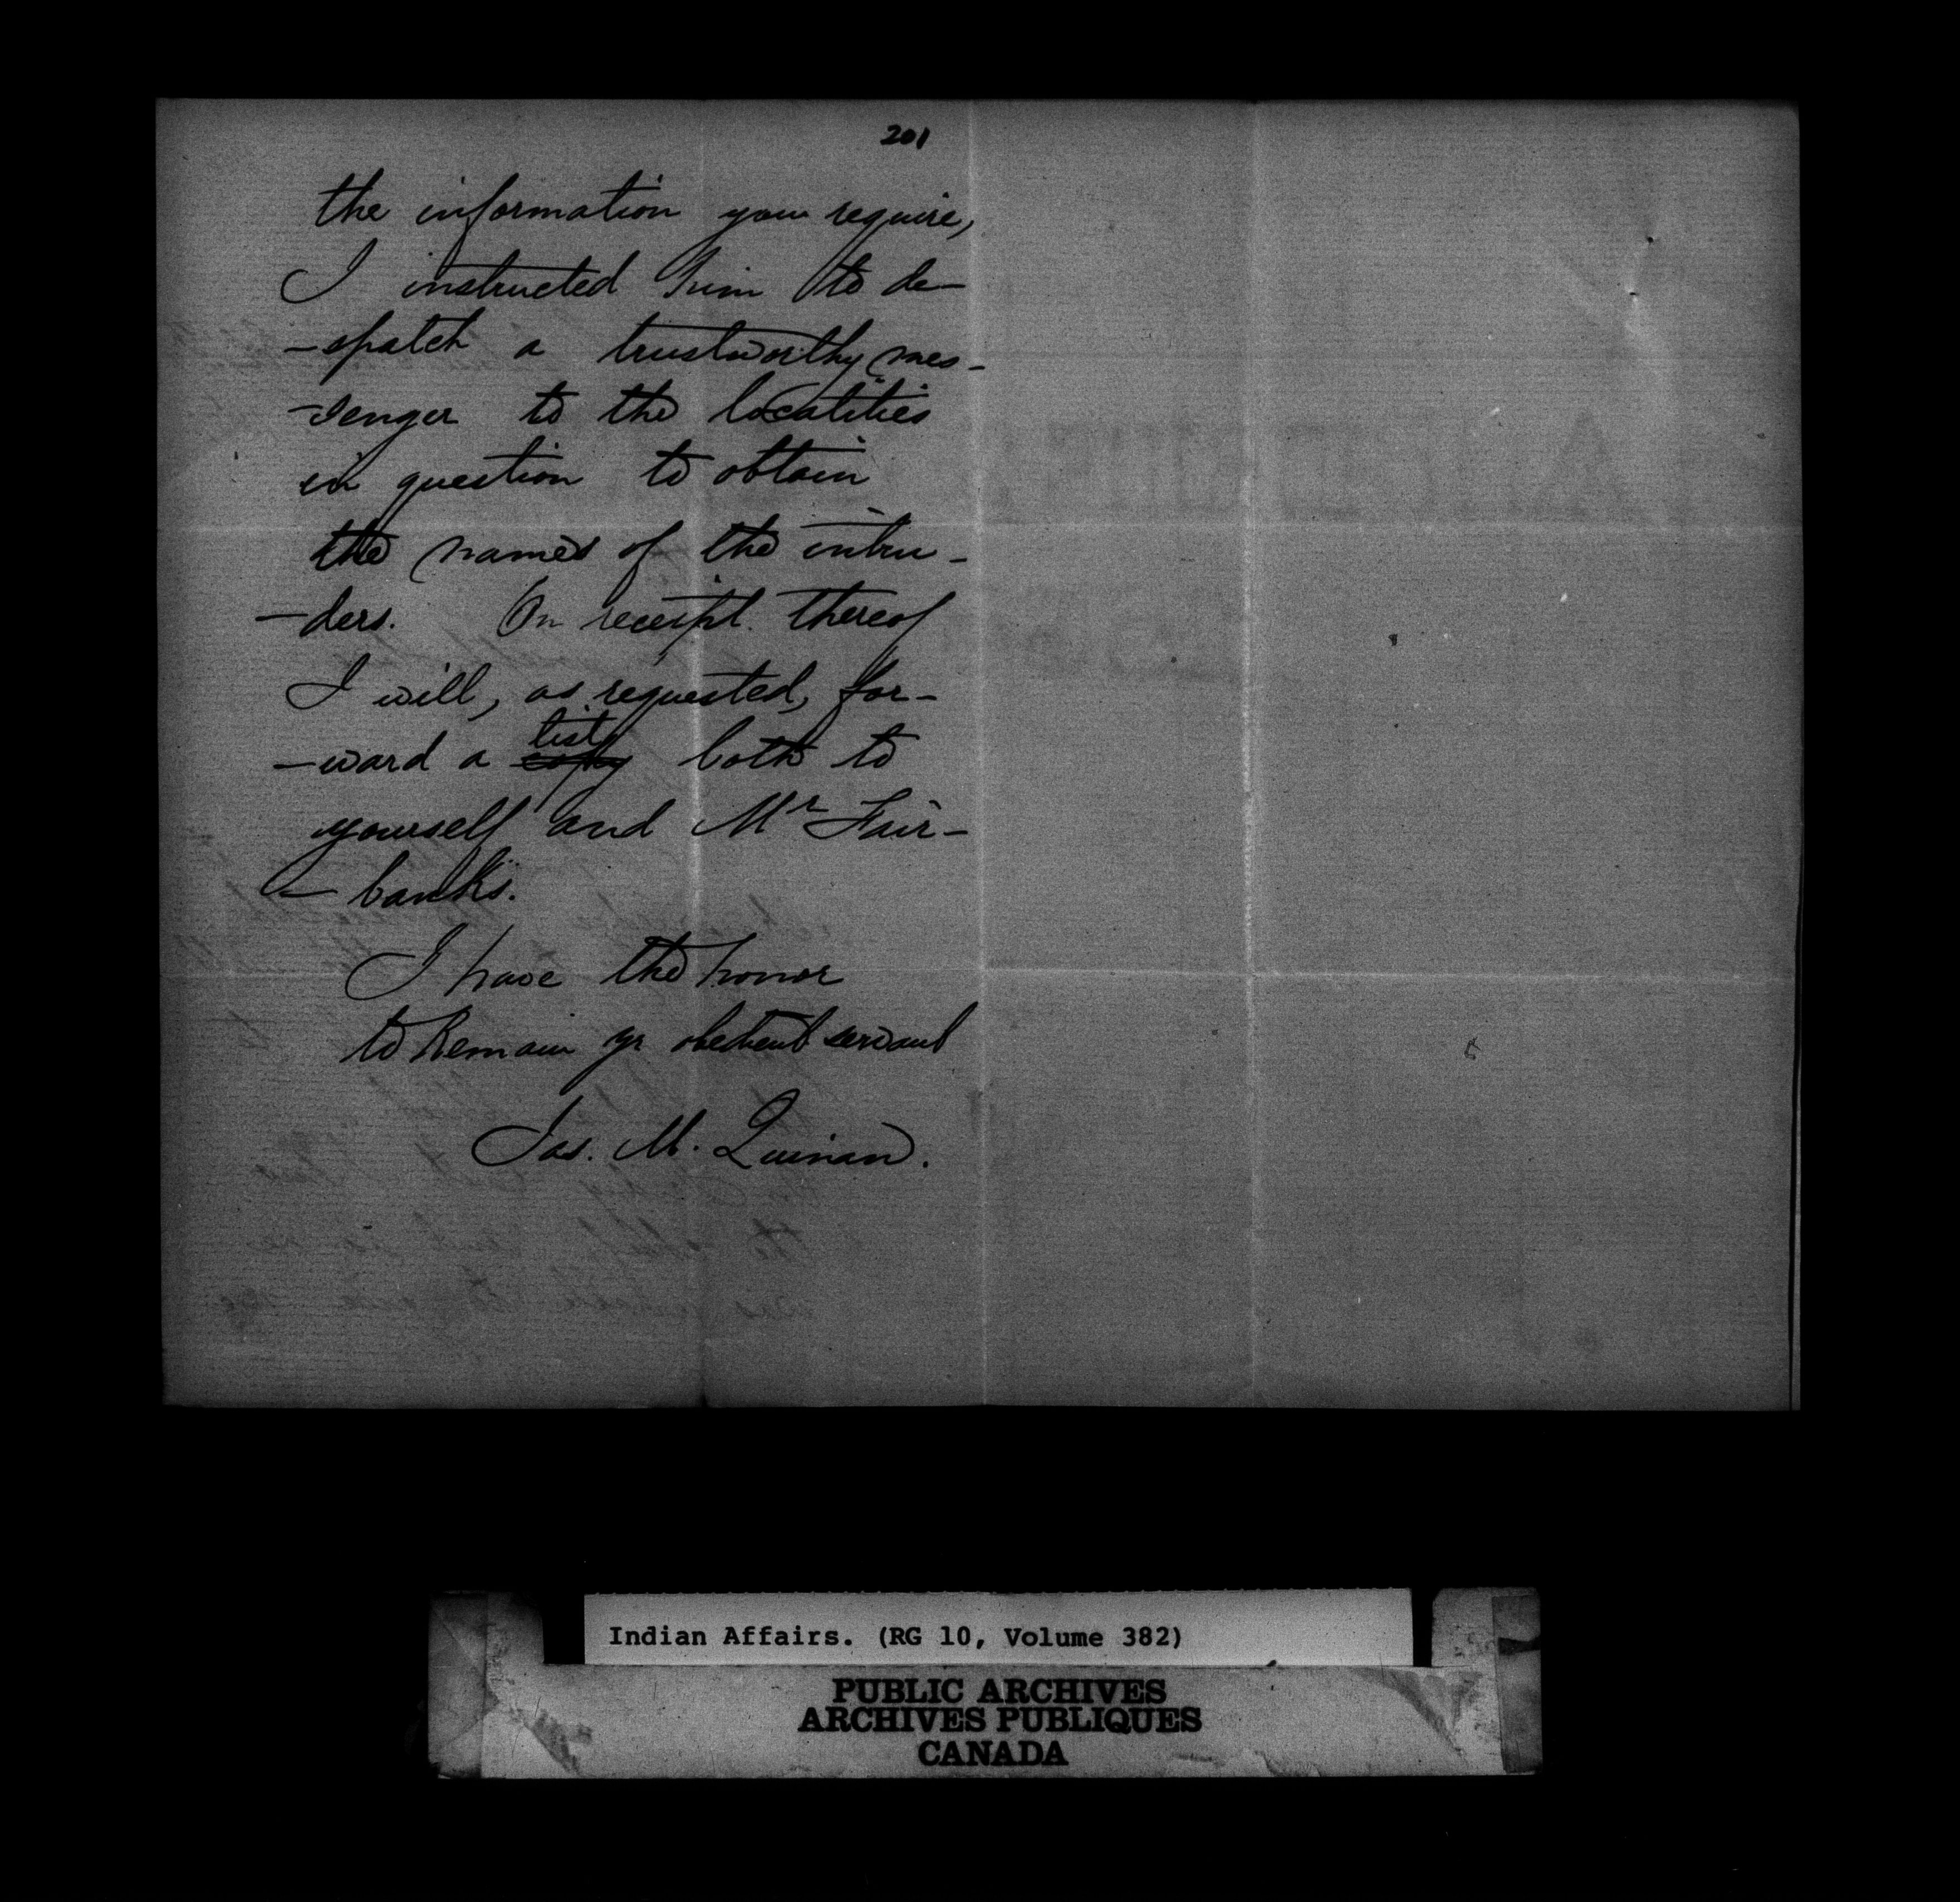 201
the information you require,
I instructed him to de-
-spatch a trustworthy mes-
-senger to the localities
in question to obtain
the names of the intru-
-ders. On receipt thereof
I will, as requested, for-
list
-ward a copy both to
yourself and Mr Fair-
-banks.
I have the honor
to Remain yr obedient servant
Jas. M. Quinan.
Indian Affairs. (RG 10, Volume 382)
PUBLIC ARCHIVES
ARCHIVES PUBLIQUES
CANADA